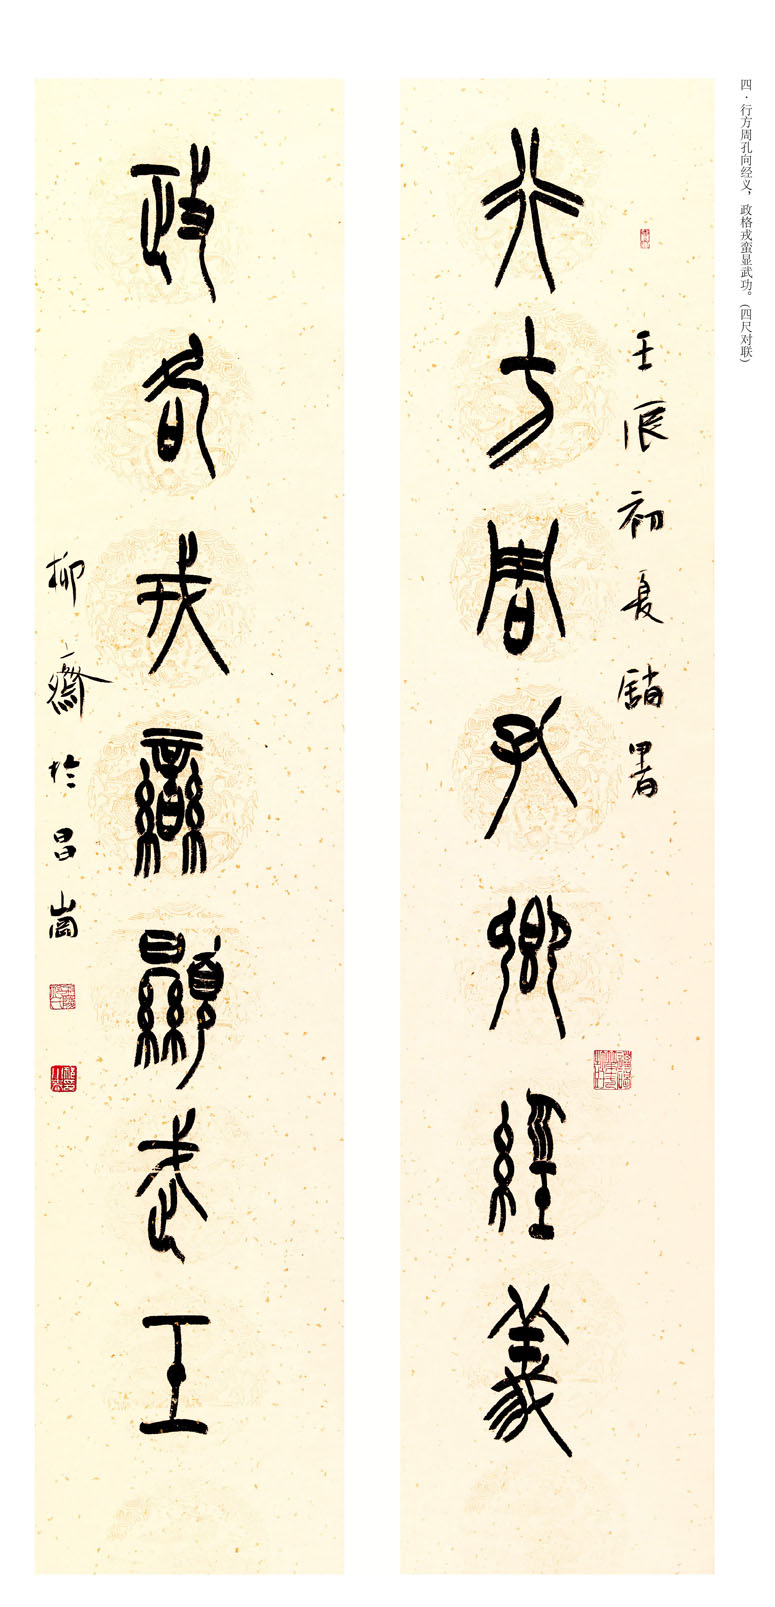 四·行方周孔向经义，政格戎蛮显武功。(四尺对联)
壬辰初夏
行方周孔鄉經義
政各戎蠻顯武工
柳齋於昌崗